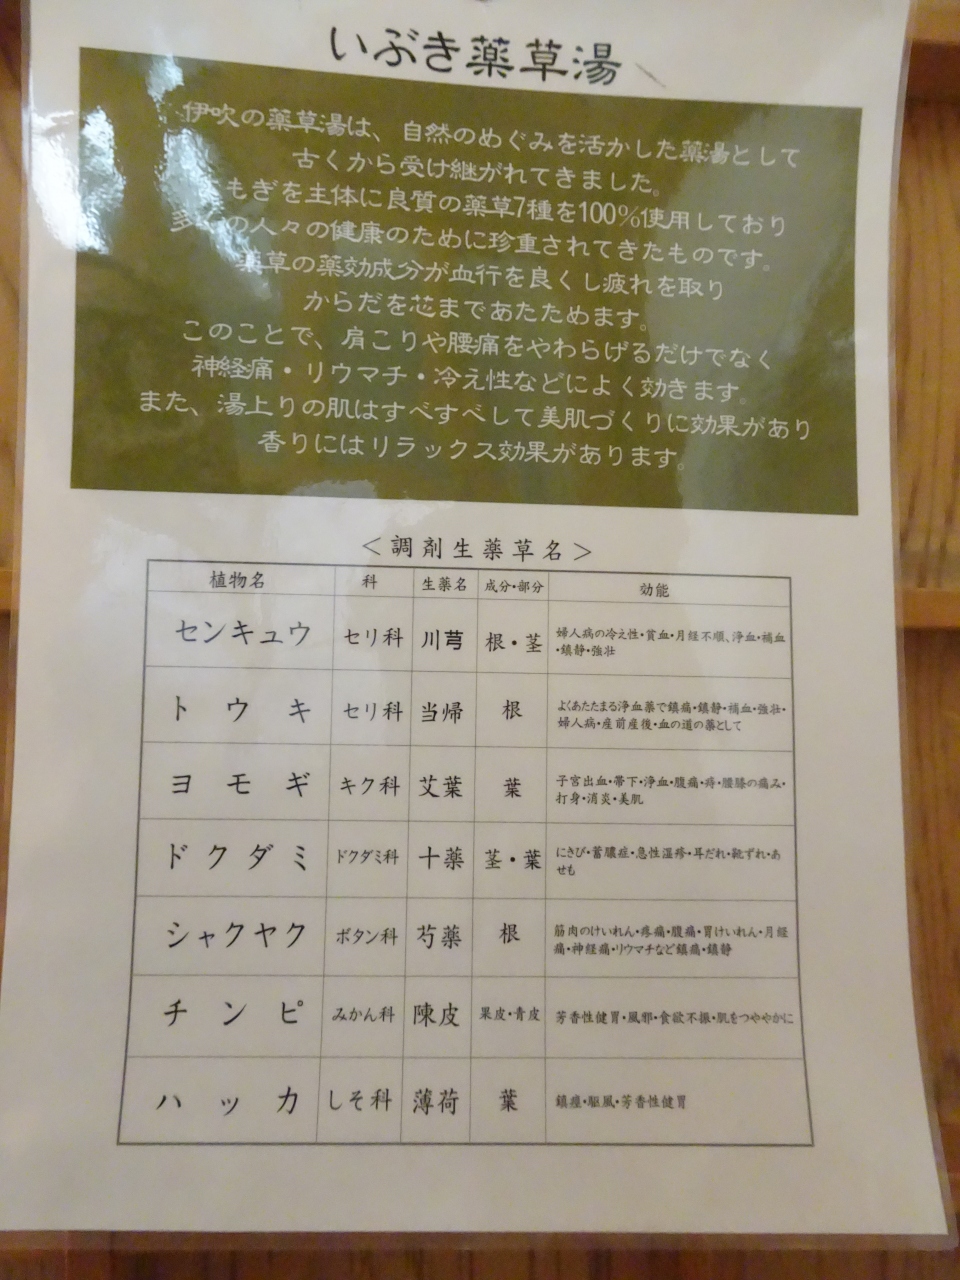 いぶき薬草湯
伊吹の薬草湯は、自然のめぐみを活かした薬湯として
古くから受け継がれてきました。
もぎを主体に良質の薬草7種を100%使用しており
多くの人々の健康のために珍重されてきたものです。
薬草の薬効成分が血行を良くし疲れを取り
からだを芯まであたためます。
このことで、肩こりや腰痛をやわらげるだけでなく
神経痛・リウマチ・冷え性などによく効きます。
また、湯上りの肌はすべすべして美肌づくりに効果があり
香りにはリラックス効果があります。
＜調剤生薬草名＞
植物名 科 生薬名 成分・部分 効能
センキュウ セリ科 川芎 根・茎 婦人病の冷え性・貧血・月経不順、浄血・補血
・鎮静・強壮
トウキ セリ科 当帰 根 よくあたたまる浄血薬で鎮痛・鎮静・補血・強壮・
婦人病・産前産後・血の道の薬として
ヨモギ キク科 艾葉 葉 子宮出血・帯下・浄血・腹痛・痔・腰膝の痛み・
打身・消炎・美肌
ドクダミ ドクダミ科 十薬 茎・葉 にきび・蓄膿症・急性湿疹・耳だれ・靴ずれ・あ
せも
シャクヤク ボタン科 芍薬 根 筋肉のけいれん・疼痛・腹痛・胃けいれん・月経
痛・神経痛・リウマチなど鎮痛・鎮静
チンピ みかん科 陳皮 果皮・青皮 芳香性健胃・風邪・食欲不振・肌をつややかに
ハッカ しそ科 薄荷 葉 鎮痙・駆風・芳香性健胃